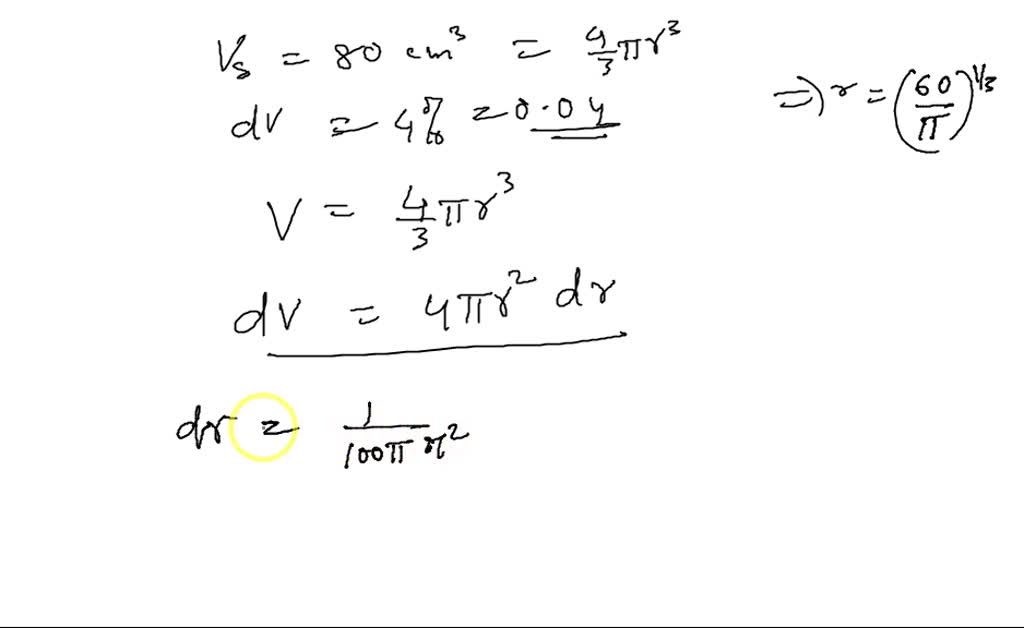 Vs = 80 cm³ = 4/3 πr³
⇒ r = (60/π)^1/3
dV = 4% = 0.04
V = 4/3 πr³
dV = 4πr² dr
dr = 1/100π r²